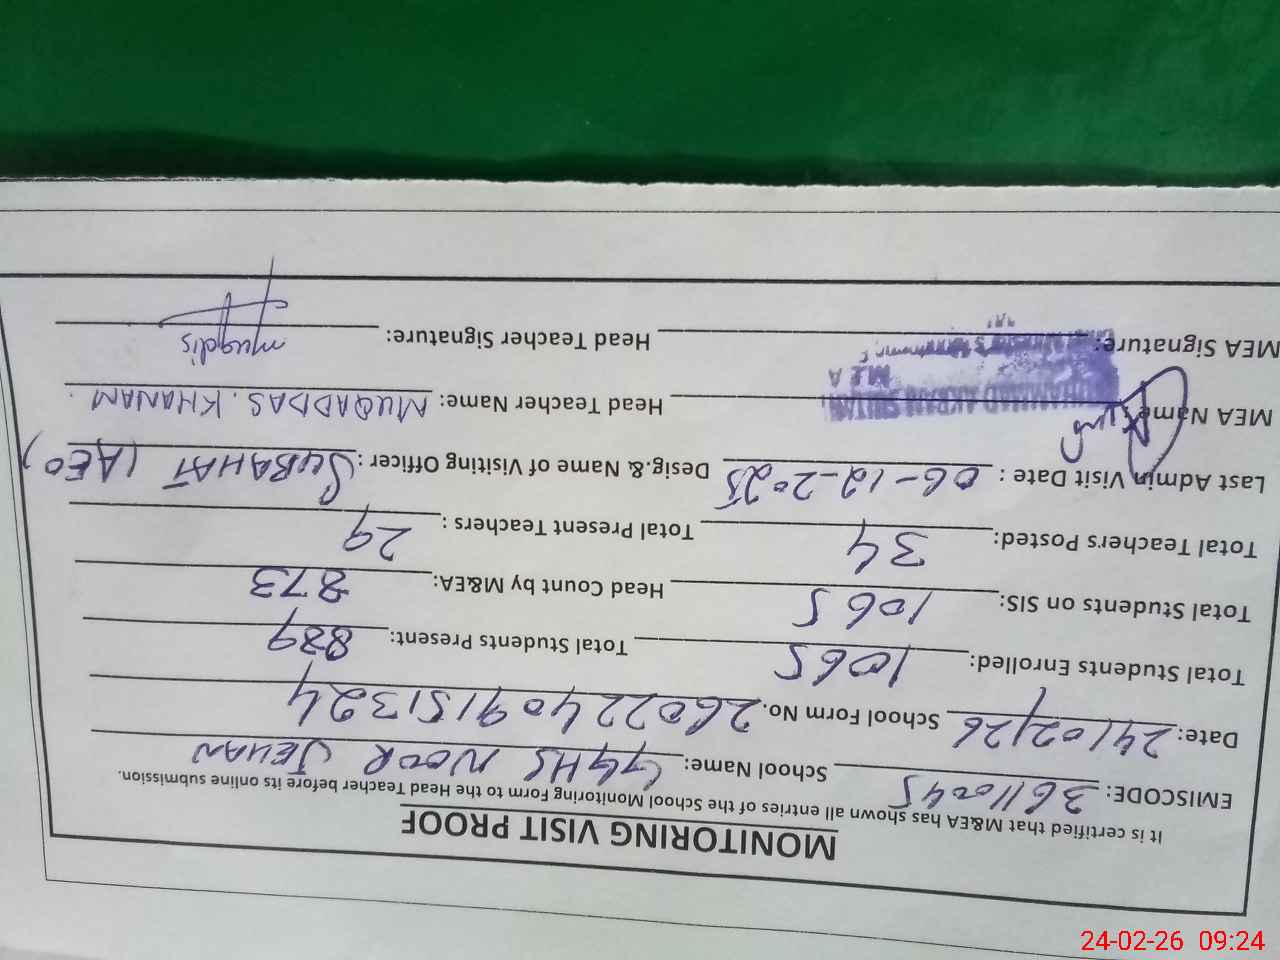 MONITORING VISIT PROOF
It is certified that M&EA has shown all entries of the School Monitoring Form to the Head Teacher before its online submission.
EMISCODE: 36110045 School Name: GGHS NOOR JEHAN
Date: 24/02/26 School Form No. 26022409151324
Total Students Enrolled: 1065 Total Students Present: 889
Total Students on SIS: 1065 Head Count by M&EA: 873
Total Teachers Posted: 34 Total Present Teachers: 29
Last Admin Visit Date: 06-12-2025 Desig.& Name of Visiting Officer: SUBAHAT (AEO)
MEA Name: Head Teacher Name: MUQADDAS. KHANAM.
MEA Signature: Head Teacher Signature: muqdis
24-02-26 09:24